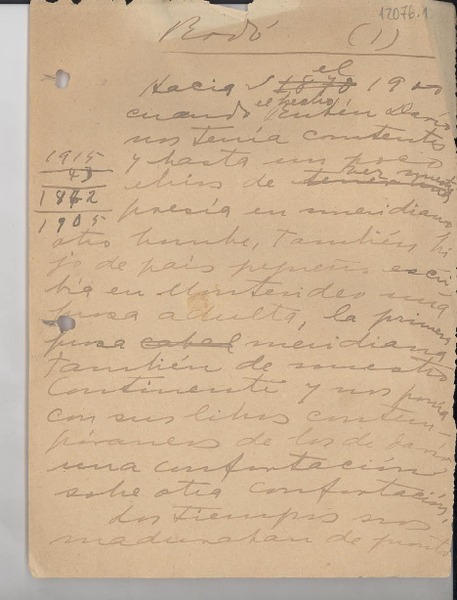 12076.1
Rodó (1)
Hacia el 1890 1900
cuando el hecho Rubén Darío
nos tenía contentos
y hasta un poco
ebrios de ver nuestra
poesía en meridiano
otro hombre, también hi-
jo de país pequeño escri-
bía en Montevideo una
prosa adulta, la primera
prosa cabal meridiana
también de nuestro
Continente y nos ponía
con sus libros contem-
poráneos de los de Darío
una confortación
sobre otra confortación.
Los tiempos nos
maduraban de pronto
1915
43
1872
1905